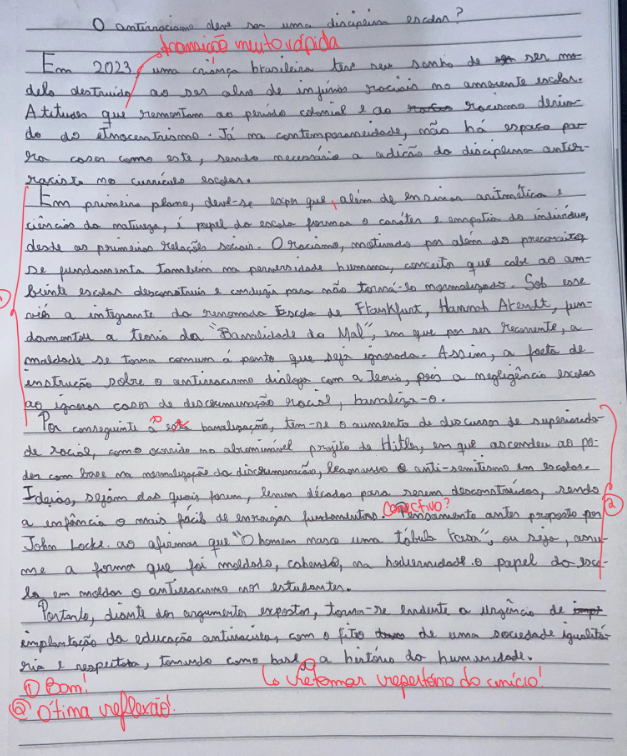 O antirracismo deve ser uma disciplina escolar?
transição muito rápida
Em 2023, uma criança brasileira teve seu sonho de ser mo-
delo destruído ao ser alvo de injúrias raciais no ambiente escolar.
Atitudes que remontam ao período colonial e ao racismo deriva-
do do etnocentrismo. Já na contemporaneidade, não há espaço pa-
ra casos como este, sendo necessário a adição da disciplina antir-
racista no currículo escolar.
Em primeiro plano, deve-se expor que, além de ensinar aritmética e
ciências da natureza, é papel da escola formar o caráter e empatia do indivíduo,
desde as primeiras relações sociais. O racismo, motivado por além do preconceito,
se fundamenta também na perversidade humana, conceito que cabe ao am-
biente escolar desconstruir e conduzir para não torná-lo normalizado. Sob esse
viés a integrante da renomada Escola de Frankfurt, Hannah Arendt, fun-
damentou a teoria da "Banalidade do Mal", em que por ser recorrente, a
maldade se torna comum á ponto que seja ignorada. Assim, a falta de
instrução sobre o antirracismo dialoga com a teoria, pois a negligência escolar
ao ignorar casos de descriminação racial, banaliza-o.
Por conseguinte à banalização, tem-se o aumento de discursos de superiorida-
de racial, como ocorrido no abominável projeto de Hitler, em que ascendeu ao po-
der com base na normalização da discriminação, o anti-semitismo em escolas.
Ideias, sejam das quais forem, levam décadas para serem desconstruídas, sendo
a infância o mais fácil de enraizar fundamentos. Conectivo? Pensamento antes proposto por
John Locke. ao afirmar que "O homem nasce uma tábula rasa", ou seja, assu-
me a forma que foi moldado, cabendo, na hodiernidade o papel da esco-
la em moldar o antirracismo nos estudantes.
Portanto, diante dos argumentos expostos, torna-se evidente a urgência de
implantação da educação antirracista, com o fito de uma sociedade igualitá-
ria e respeitosa, tomando como base a história da humanidade.
① Bom!
↳ Retomar repertório do início!
② Ótima reflexão!